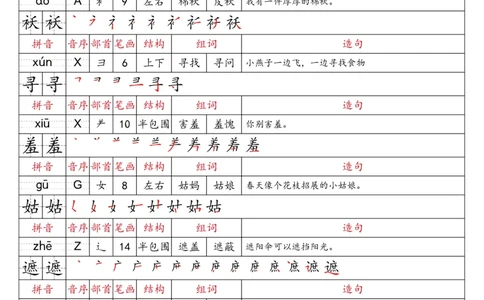 ǎo A 衤 9 左右 棉袄 皮袄 我有一件厚厚的棉袄。
袄 袄
拼音 音序 部首 笔画 结构 组词 造句
xún X 彐 6 上下 寻找 寻问 小燕子一边飞,一边寻找食物
寻 寻
拼音 音序 部首 笔画 结构 组词 造句
xiū X ⺶ 10 半包围 害羞 羞愧 你别害羞。
羞 羞
拼音 音序 部首 笔画 结构 组词 造句
gū G 女 8 左右 姑妈 姑娘 春天像个花枝招展的小姑娘。
姑 姑
拼音 音序 部首 笔画 结构 组词 造句
zhē Z 辶 14 半包围 遮盖 遮蔽 遮阳伞可以遮挡阳光。
遮 遮
拼音 音序 部首 笔画 结构 组词 造句